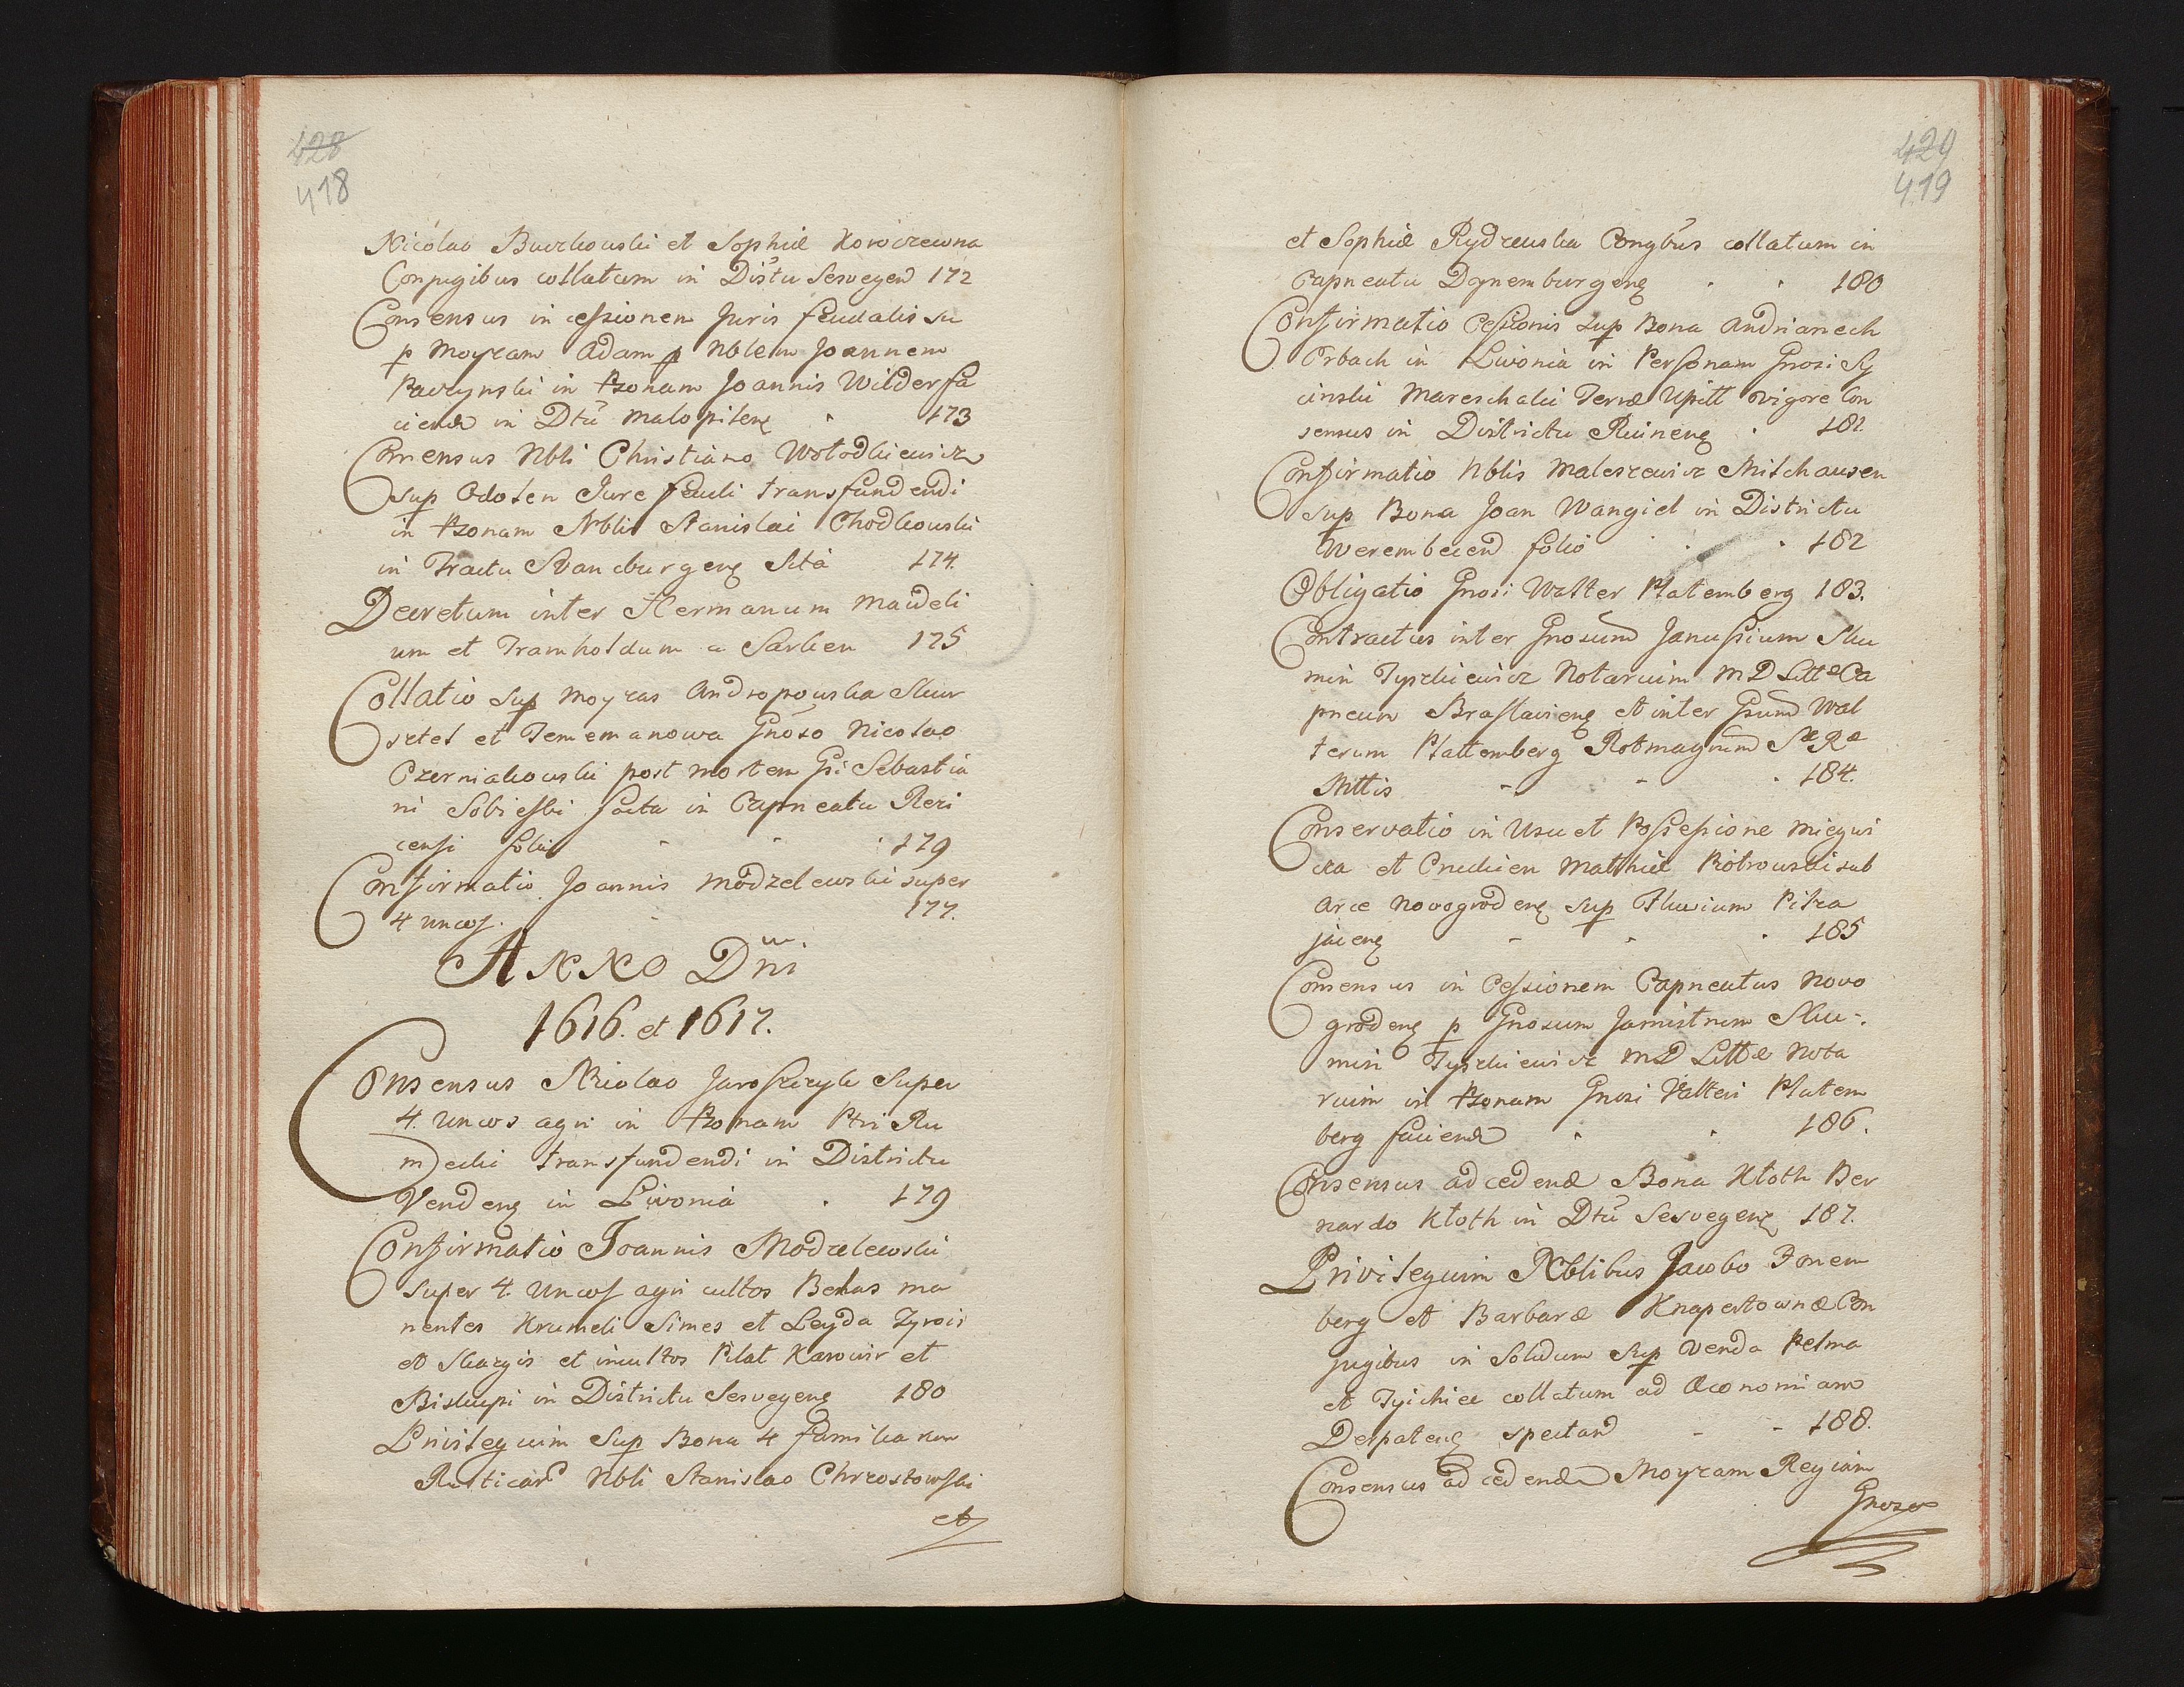 428
418
Nicolao Burzkouski et Sophiæ Korvizewna
Conjugibus collatum in Distu Sesvegen 172
Consensus in cessionem Juris feudalis su
p Moyzam Adam p Nblem Joannem
Paczynski in Psonam Joannis Wilder fa
ciend in Dtu Malopilen 173
Consensus Nbli Christiano Wolodkiewicz
sup Odolen Jure feudi transfundendi
in Psonam Nblis Stanislai Chodkouski
in Tractu Svaneburgen Sita 174.
Decretum inter Hermanum Maideli
um et Tramholdum a Sarken 175
Collatio sup Moyzas Andropowska Skur
sztel et Tememanowa Gnoso Nicolao
Czerniakouski post mortem Gi Sebastia
ni Sobieski facta in Capneatu Rezi
censi folio 179
Confirmatio Joannis Modzelewski super
4 uncos. 177.
ANNO Dni
1616. et 1617.
Consensus Nicolao Jaroszczyk Super
4. uncos agri in Psonam Ptri Ru
mecki transfundendi in Districtu
Venden in Livonia 179
Confirmatio Joannis Modzelewski
super 4 Uncos agri cultos Behas ma
nentes Krumeli Simes et Leyda Zyrois
et Skargis et incultos Pilat Karowir et
Biskupi in Districtu Sesvegen 180
Privilegium Sup Bona 4 familiarum
Rusticar Nbli Stanislao Chrzostowski
et
429
419
et Sophiæ Rydzewska Congbus collatum in
Capneatu Dynemburgen 180
Confirmatio Cessionis sup Bona Andrianech
Orbach in Livonia in Personam Gnosi Sy
cinski Mareschalci Terræ Upitt vigore Con
sensus in Districtu Ruinen 181.
Confirmatio Nblis Maleszewicz Milchausen
sup Bona Joan Wangiel in Districtu
Werembecen folio 182
Obligatio Gnosi Walter Platemberg 183.
Contractus inter Gnosum Janussium Sku
min Tyszkiewicz Notarium M D Litt Ca
pneum Braslavien et inter Gsum Wal
terum Plattemberg Rotmagrum Sæ Ræ
Mttis 184.
Conservatio in Usu et Possessione Miegui
cka et Crudien Matthiæ Piotrowski sub
Arce Novogroden sup Fluvium Pilza
jacen 185
Consensus in Cessionem Capneatus Novo
groden p Gnosum Jamistrum Sku-
min Tyszkiewicz M D Littæ Nota
rium in Psonam Gnosi Valteri Platem
berg faciend 186.
Consensus ad cedend Bona Kloth Ber
nardo Kloth in Dtu Sesvegen 187.
Privilegium Nblibus Jacobo Imem
berg et Barbaræ Knapertownæ Con
jugibus in Solidum Sup Venda Pelma
et Tyichiee collatum ad Œconomiam
Derpaten spectand 188.
Consensus ad cedend Moyzam Regiam
Gnoso